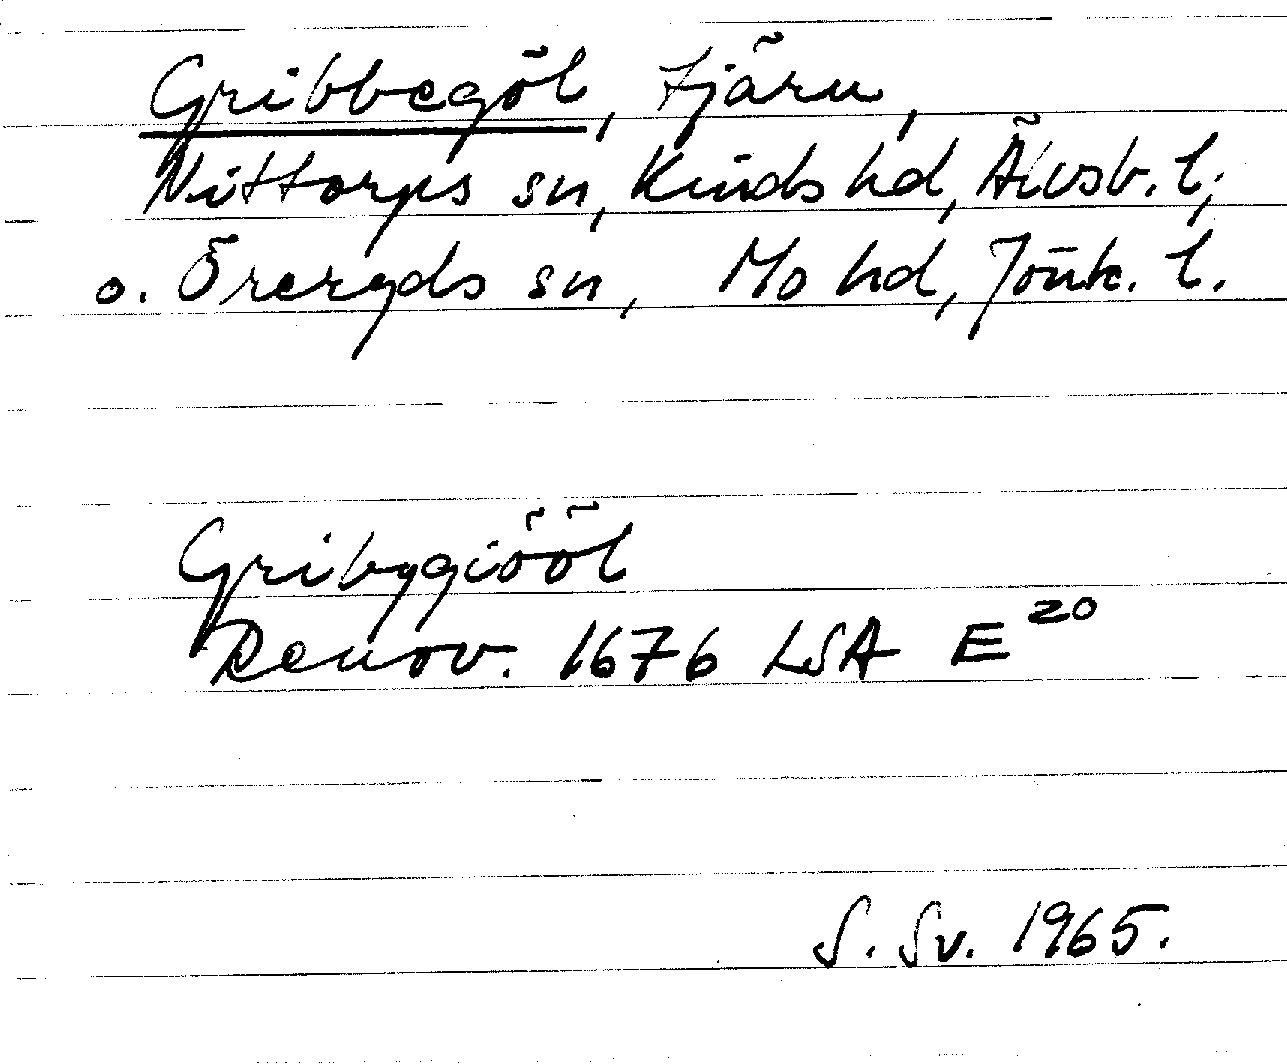 Gribbegöl, tjärn,
Nittorps sn, Kinds hd, Älvsb. l.
o. Öreryds sn, Mo hd, Jönk. l.
Gribygiööl
Renov. 1676 LSA E 20
S. Sv. 1965.